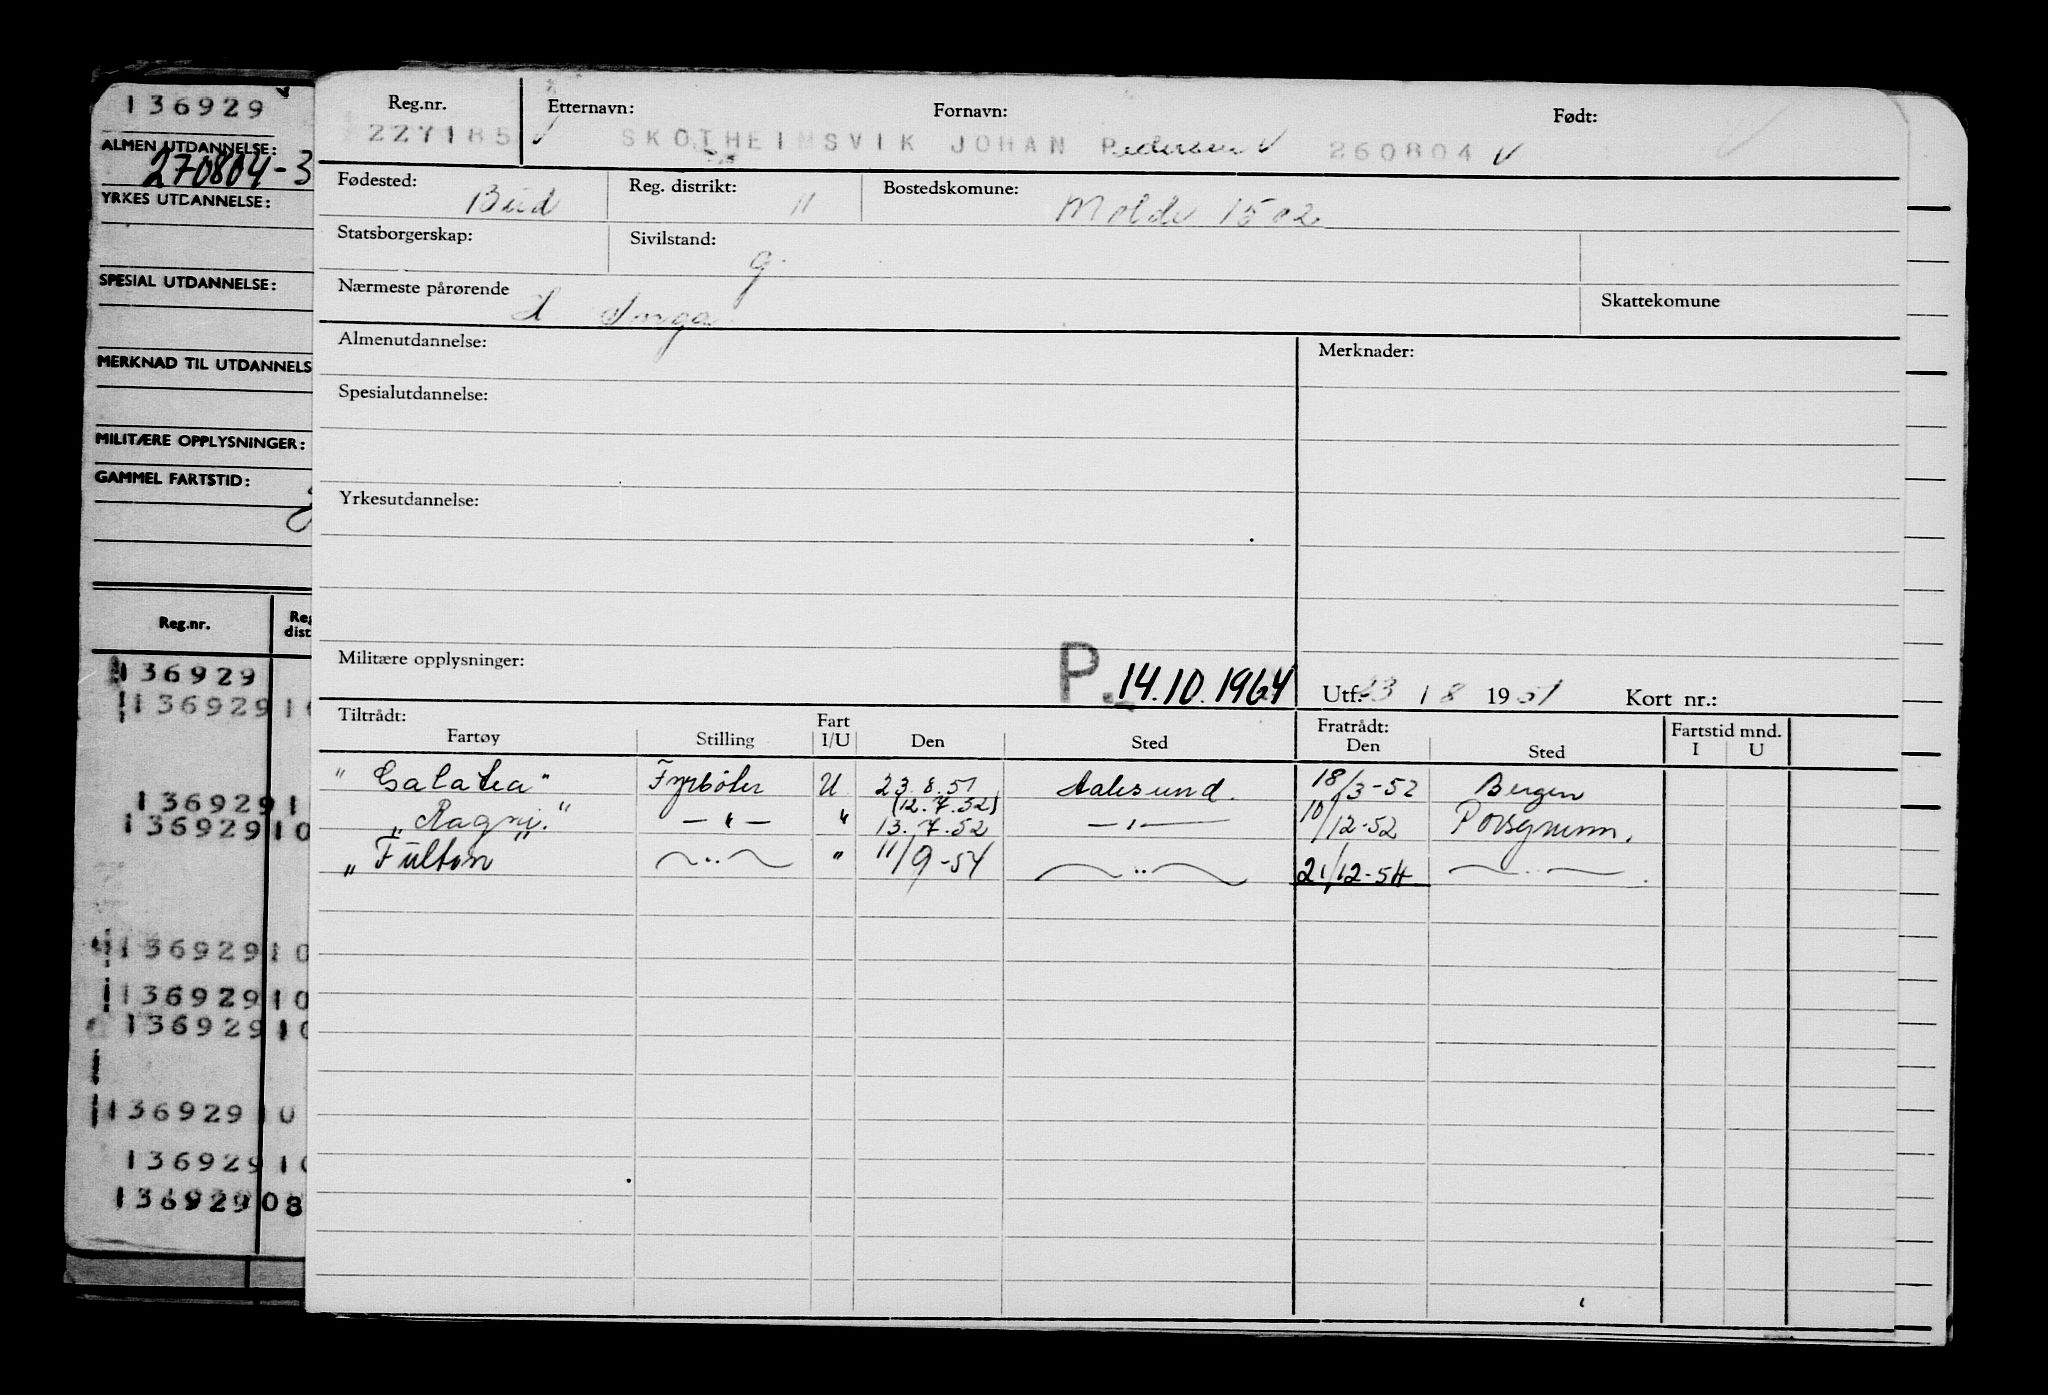 136929
ALMEN UTDANNELSE:
270804-3
YRKES UTDANNELSE:
SPESIAL UTDANNELSE:
MERKNAD TIL UTDANNELS
MILITÆRE OPPLYSNINGER:
GAMMEL FARTSTID:
Reg.nr. Reg dist
136929
136929 10
136929 1
136929 10
136929 10
136929 10
136929 10
136929 10
136929 10
136929 08
Reg.nr. Etternavn: Fornavn: Født:
227185 SKOTHEIMSVIK JOHAN Pedersen 260804
Fødested: Reg. distrikt: Bostedskomune:
Bud 11 Molde 1502
Statsborgerskap: Sivilstand:
g.
Nærmeste pårørende Skattekomune
H Inga
Almenutdannelse: Merknader:
Spesialutdannelse:
Yrkesutdannelse:
Militære opplysninger: P. 14.10.1964 Utf. 23 / 8 1951 Kort nr.:
Tiltrådt: Fart Fratrådt: Fartstid mnd.
Fartøy Stilling I/U Den Sted Den Sted I U
"Galatea" Fyrbøter U 23.8.51 Aalesund. 18/3-52 Bergen
(12.7.52)
"Ragni." —"— " 13.7.52 —"— 10/12-52 Porsgrunn.
"Fulton" —"— " 11/9-54 —"— 21/12-54 —"—